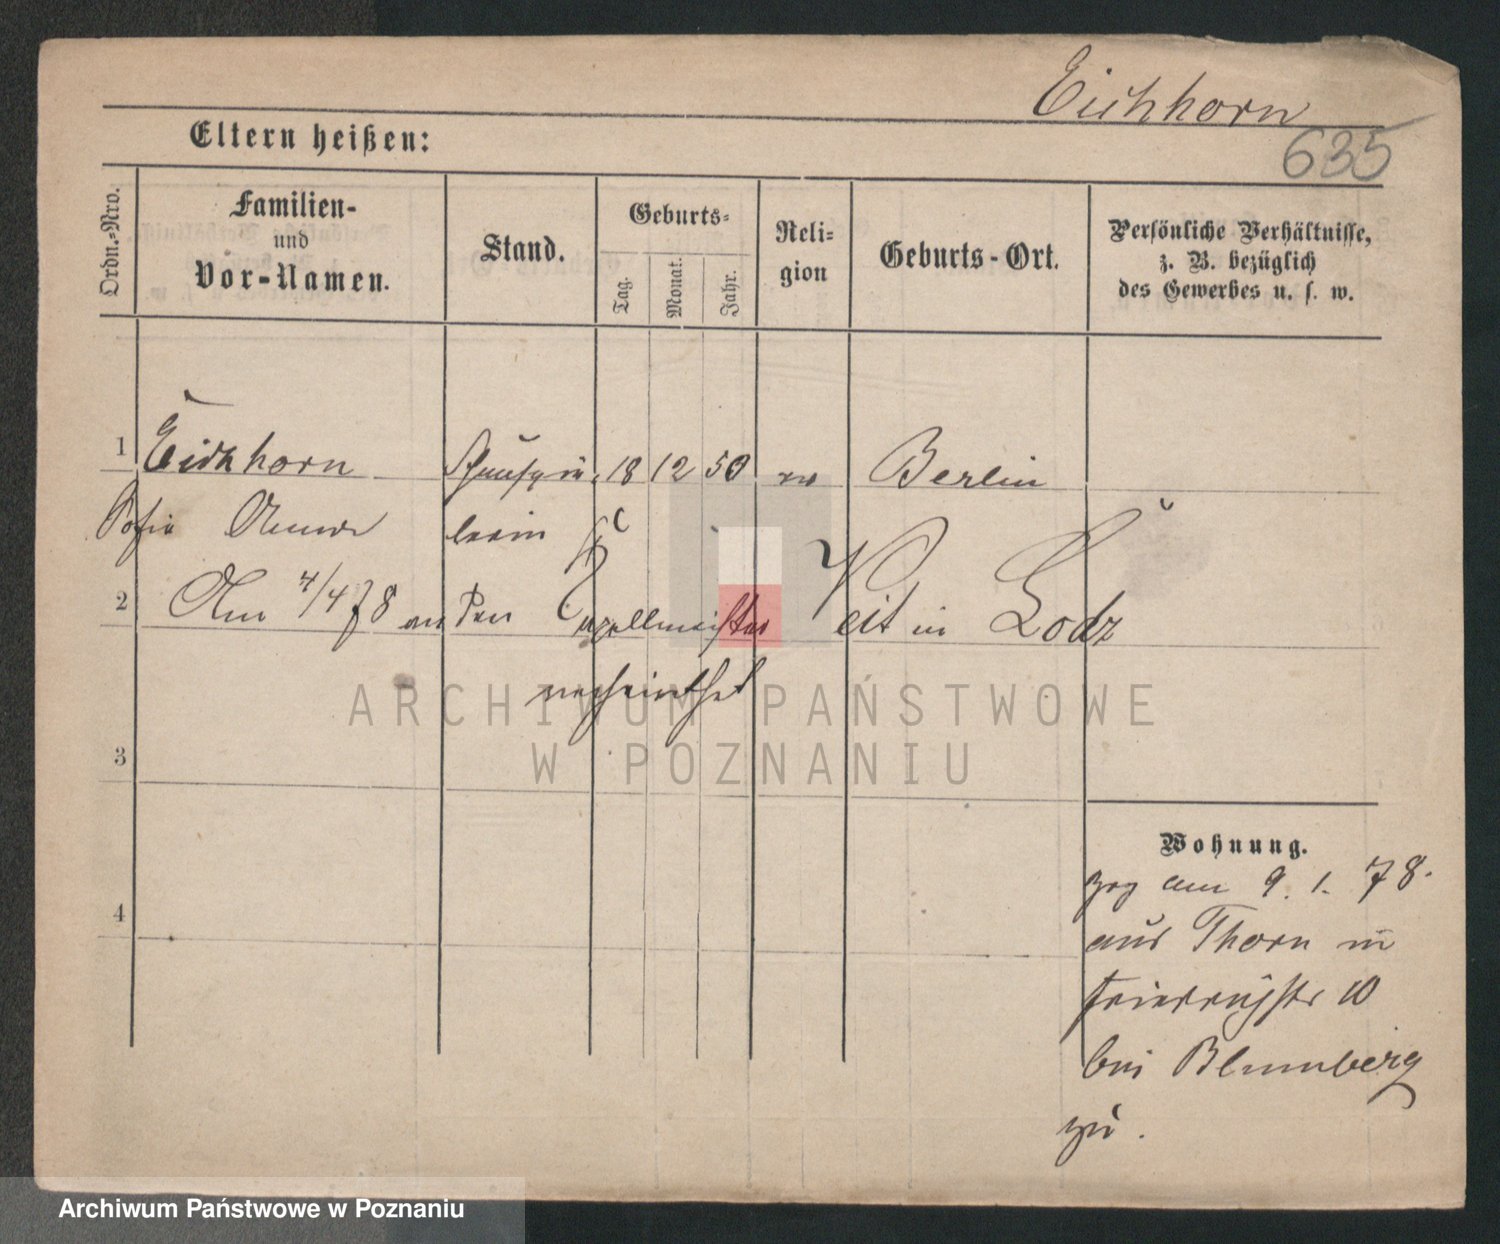 Eichhorn
635
Eltern heißen:
Ordn.-Nro.
Familien-
und
Vor-Namen.
Stand.
Geburts-
Tag.
Monat.
Jahr.
Reli-
gion
Geburts-Ort.
Persönliche Verhältnisse,
z. B. bezüglich
des Gewerbes u. s. w.
1 Eichhorn Schauspie 18 12 50 ev Berlin
Sofie lerin
2 Am 4/4 78 an den Capellmeister Veit in Lodz
verheirathet
ARCHIWUM PAŃSTWOWE
W POZNANIU
3
Wohnung.
zog am 9. 1. 78.
4
aus Thorn in
Friedrichstr 10
bei Blumberg
zu.
Archiwum Państwowe w Poznaniu